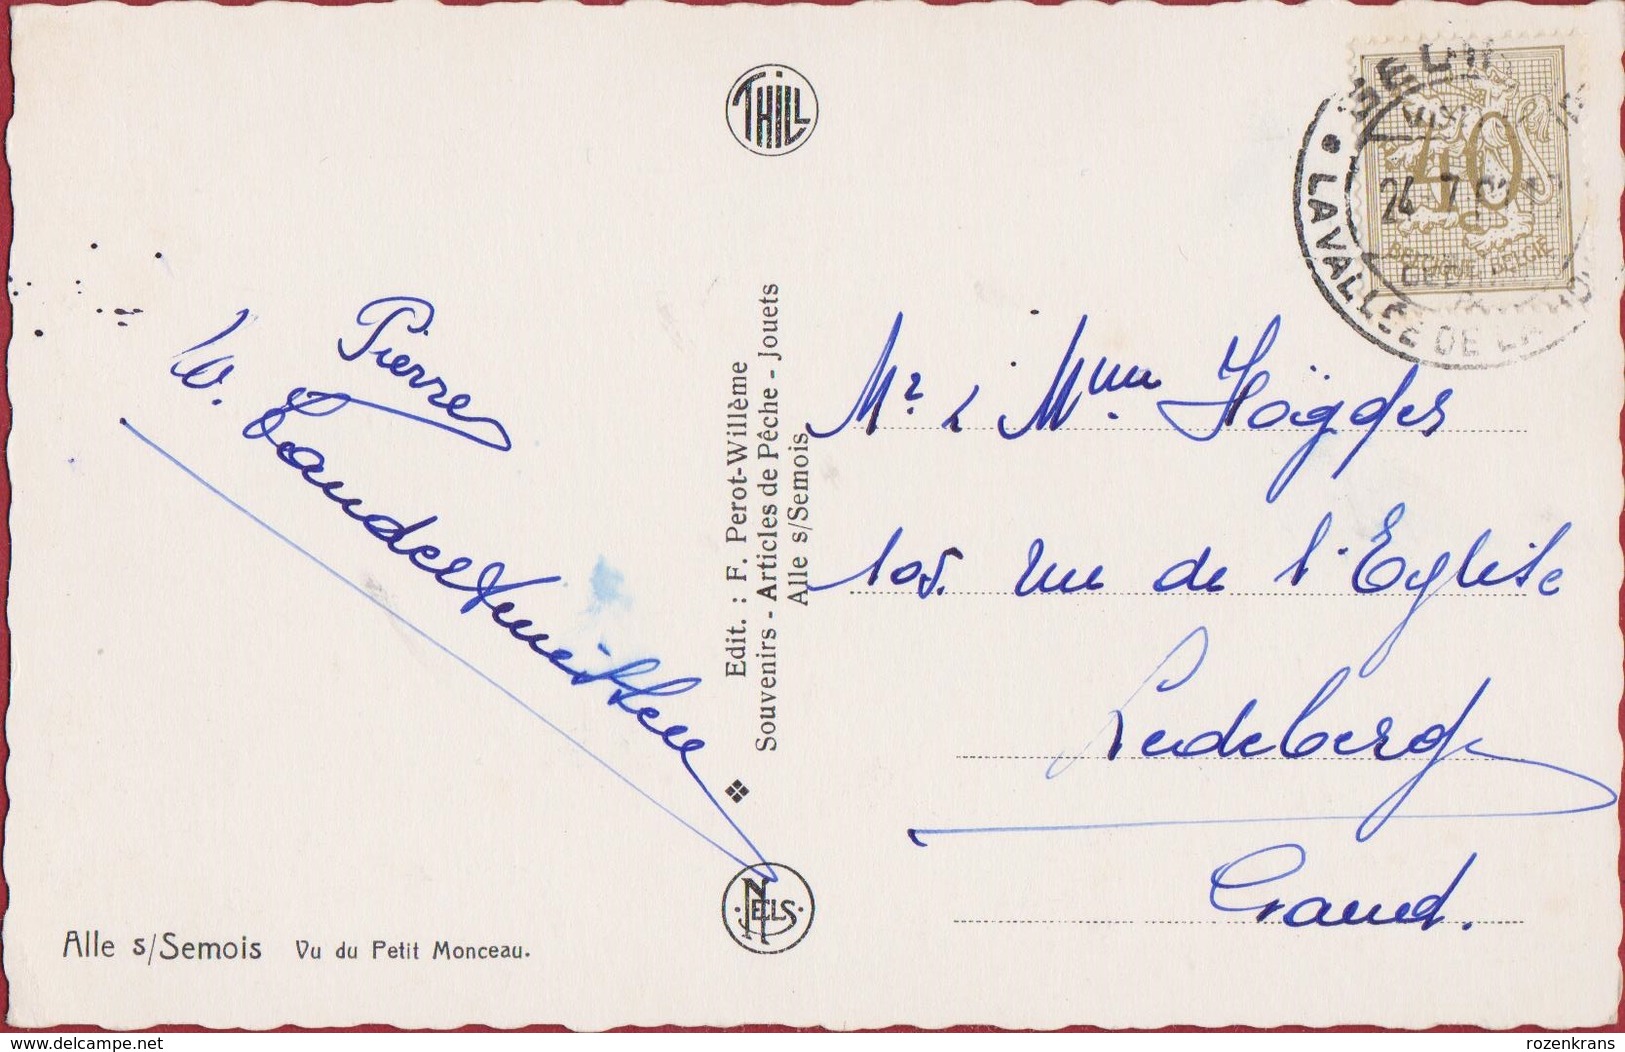 THILL
Pierre
Edit. : F. Perot-Willème
Souvenirs - Articles de Pêche - Jouets
Alle s/Semois
NELS
Alle s/Semois Vu du Petit Monceau.
40
BELGIQUE BELGIË
24 7
LA VALLEE DE LA
Mr & Mme
105. rue de l'Eglise
Ledeberg
Gand.
delcampe.net
rozenkrans